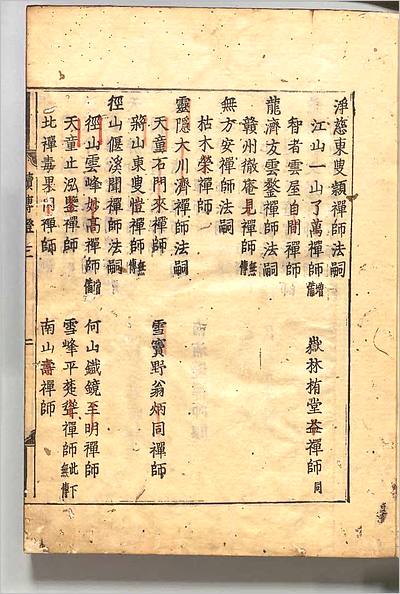 淨慈東叟頴禪師法嗣
江山一山了萬禪師增傋
嶽林栯堂益禪師同
智者雲屋自閒禪師
龍濟友雲鍪禪師法嗣
贛州徹庵見禪師無傳
無方安禪師法嗣
枯木榮禪師
靈隱大川濟禪師法嗣
天童石門來禪師
雪竇野翁炳同禪師
淛山東叟愷禪師無傳
徑山偃溪聞禪師法嗣
徑山雲峰妙高禪師增傋
何山鐵鏡至明禪師
天童止泓鑒禪師
雪峰平楚聳禪師此下無傳
北禪毒果因禪師
南山壽禪師